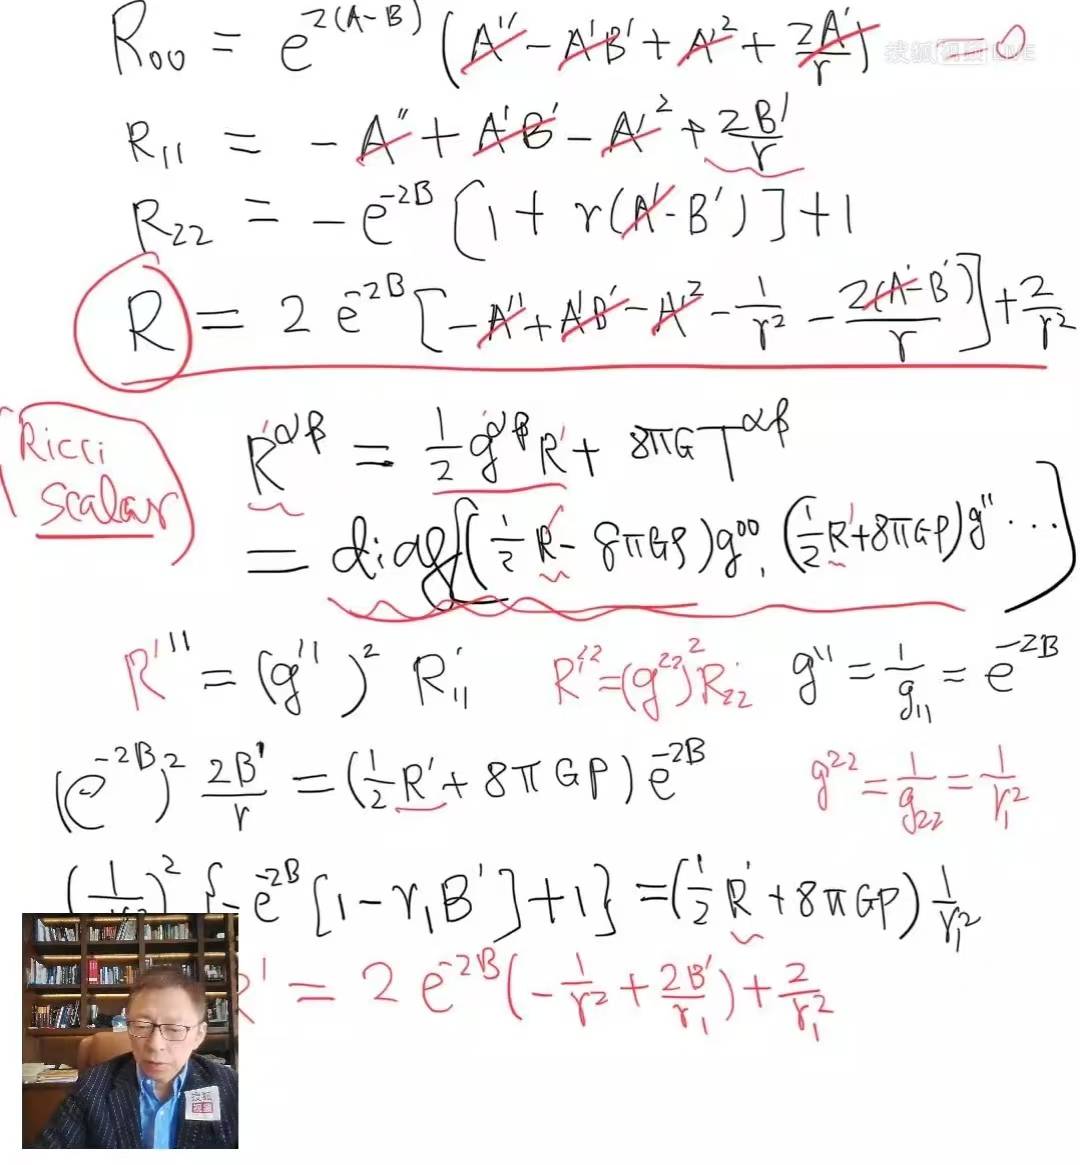 R₀₀ = e^{2(A-B)} (A'' - A'B' + A'² + 2A'/r) = 0
搜狐视频 LIVE
R₁₁ = -A'' + A'B' - A'² + 2B'/r
R₂₂ = -e^{-2B} [1 + r(A'-B')] + 1
R = 2 e^{-2B} [-A'' + A'B' - A'² - 1/r² - 2(A'-B')/r] + 2/r²
Ricci
scalar
R'^{αβ} = 1/2 g'^{αβ} R' + 8πG T^{αβ}
= diag[(1/2 R' - 8πGρ)g⁰⁰, (1/2 R' + 8πGP)g'' ...]
R'^{11} = (g^{11})² R'₁₁ R'^{22} = (g^{22})² R'₂₂ g^{11} = 1/g₁₁ = e^{-2B}
(e^{-2B})² 2B'/r = (1/2 R' + 8πGP) e^{-2B} g^{22} = 1/g₂₂ = 1/r₁²
)² {-e^{-2B} [1 - r₁B'] + 1} = (1/2 R' + 8πGP) 1/r₁²
R' = 2 e^{-2B} (-1/r² + 2B'/r₁) + 2/r₁²
搜狐
视频